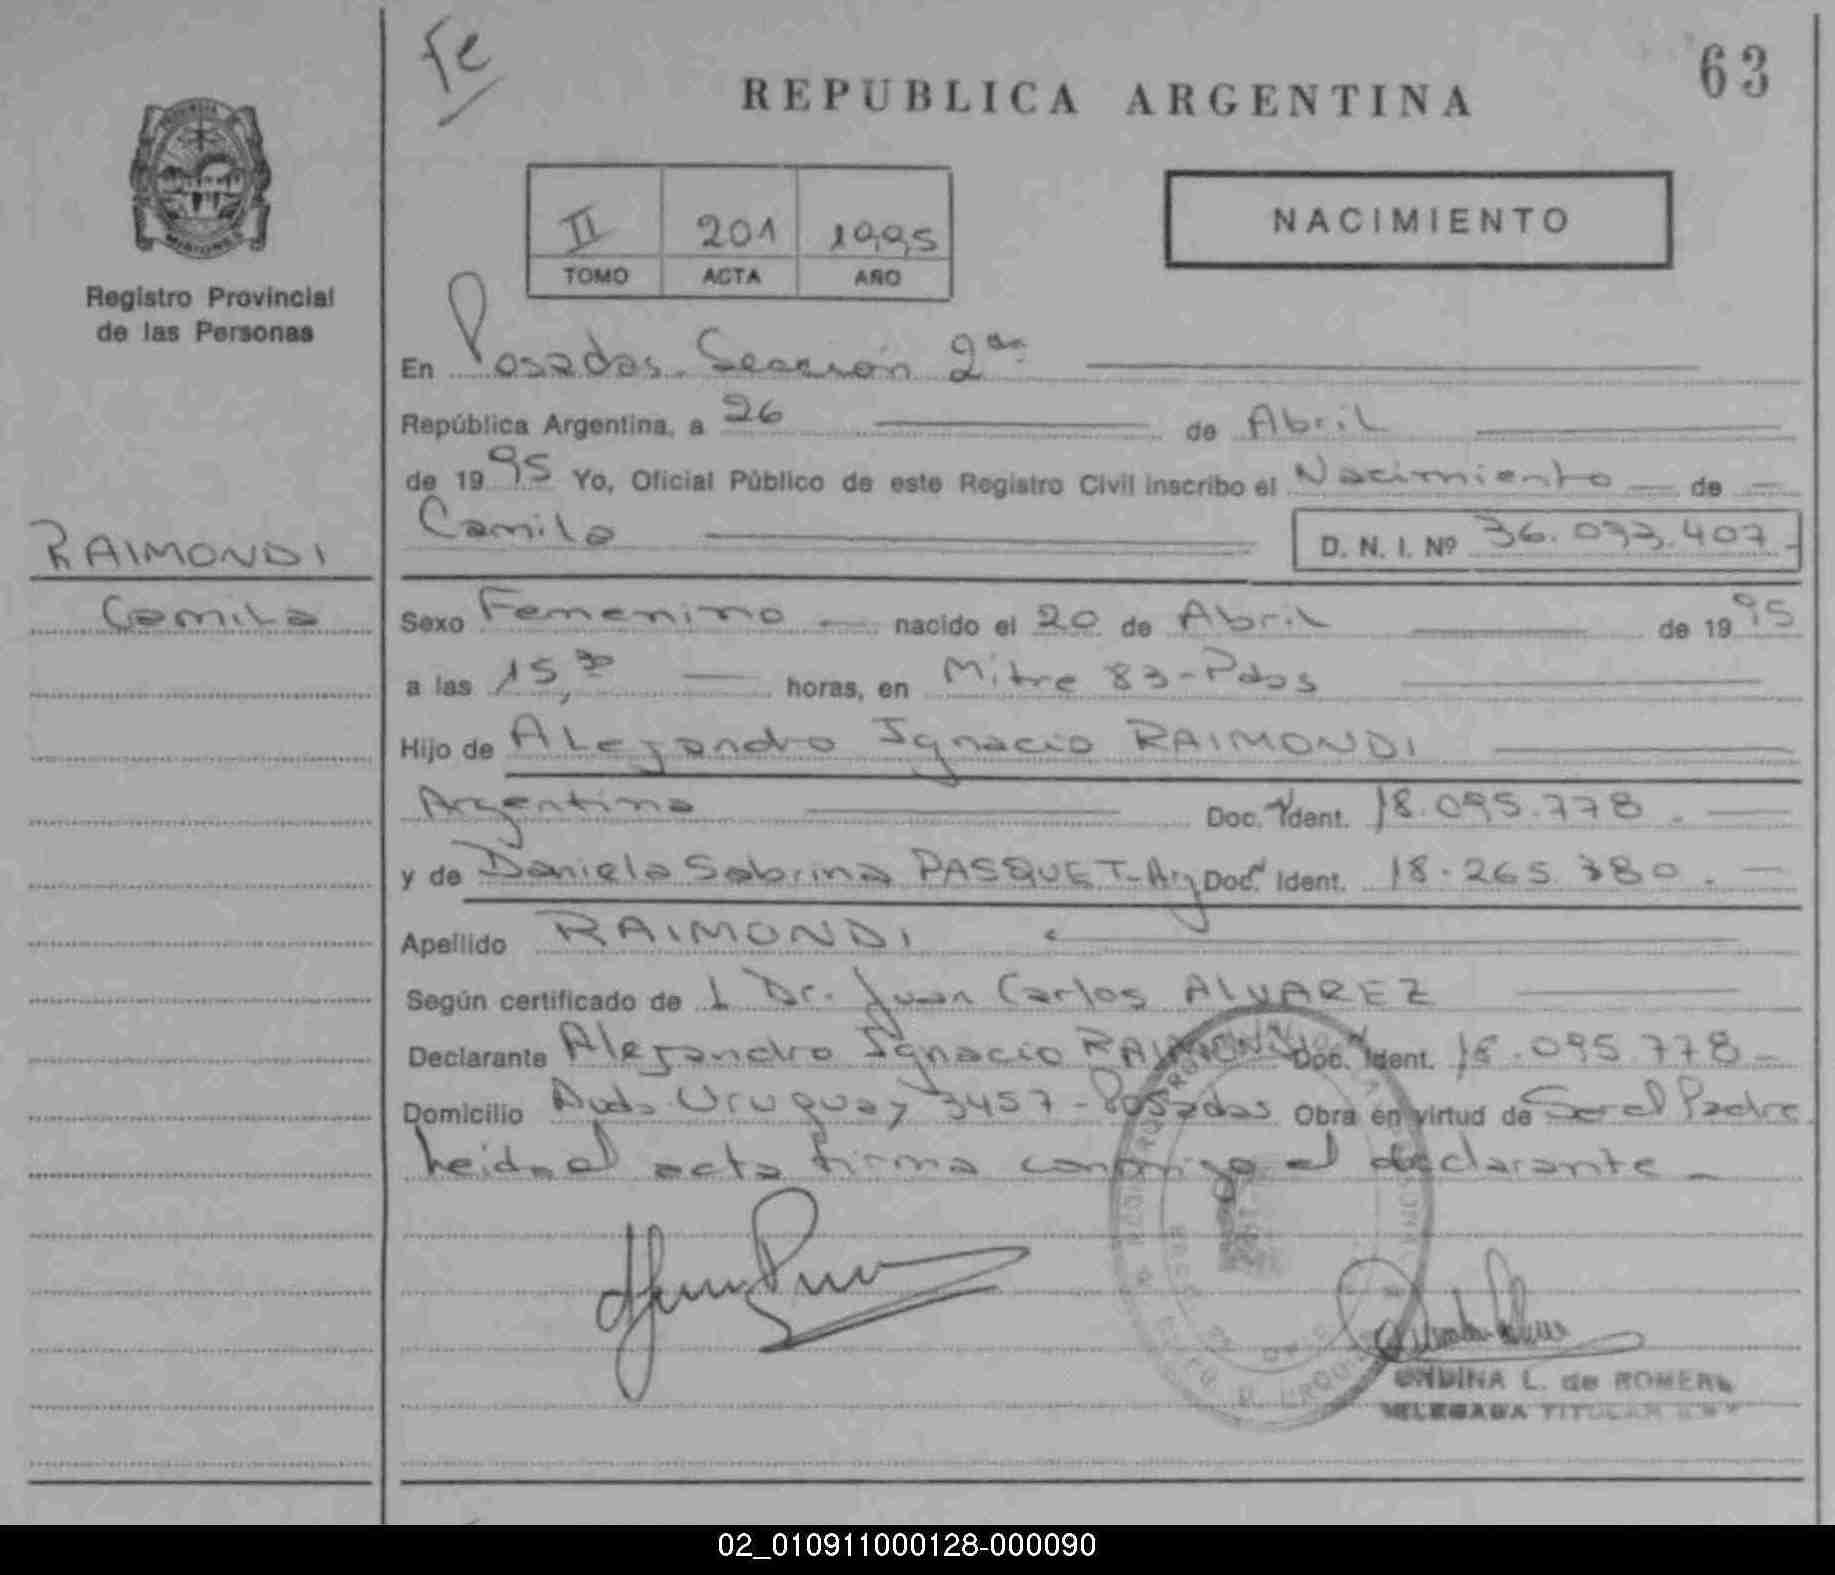 Fe
63
REPUBLICA ARGENTINA
MISIONES
Registro Provincial
de las Personas
II 201 1995
TOMO ACTA AÑO
NACIMIENTO
En Posadas. Sección 2da
República Argentina, a 26 de Abril
de 1995 Yo, Oficial Público de este Registro Civil inscribo el Nacimiento de
Camila D. N. I. Nº 36.093.407.-
RAIMONDI
Camila
Sexo Femenino nacido el 20 de Abril de 1995
a las 15,30 horas, en Mitre 83-Pdas
Hijo de Alejandro Ignacio RAIMONDI
Argentino Doc. Ident. 18.095.778.
y de Daniela Sabrina PASQUET-Arg Doc. Ident. 18.265.380.
Apellido RAIMONDI
Según certificado de l Dr. Juan Carlos ALVAREZ
Declarante Alejandro Ignacio RAIMONDI Doc. Ident. 18.095.778-
Domicilio Avda. Uruguay 3457-Posadas Obra en virtud de Ser el Padre
Leida el acta firma conmigo el declarante
ONDINA L. de ROMERO
DELEGADA TITULAR
02_010911000128-000090